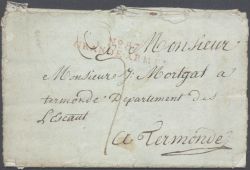 No 37
GRANDE ARMÉE
Monsieur
Monsieur J. Mortgat a
termonde Departement des
L'Escaut
a Termonde